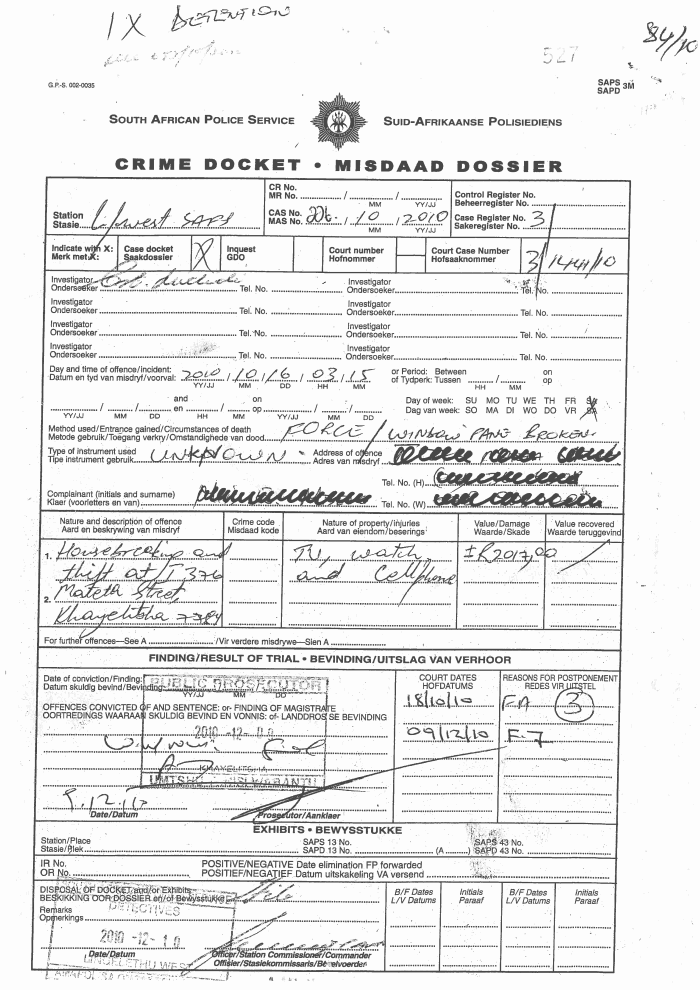 1 X DETENTION
527
84/10
G.P.-S. 002-0035
SAPS
SAPD 3M
SOUTH AFRICAN POLICE SERVICE SUID-AFRIKAANSE POLISIEDIENS
CRIME DOCKET • MISDAAD DOSSIER
CR No.
MR No. / /
MM YY/JJ
Control Register No.
Beheerregister No.
Station
Stasie L/west SAPS
CAS No.
MAS No. 226 / 10 / 2010
MM YY/JJ
Case Register No.
Sakeregister No. 3
Indicate with X:
Merk met X:
Case docket
Saakdossier X
Inquest
GDO
Court number
Hofnommer
Court Case Number
Hofsaaknommer 3/1444/10
Investigator
Ondersoeker Tel. No.
Investigator
Ondersoeker Tel. No.
Investigator
Ondersoeker Tel. No.
Investigator
Ondersoeker Tel. No.
Investigator
Ondersoeker Tel. No.
Investigator
Ondersoeker Tel. No.
Investigator
Ondersoeker Tel. No.
Investigator
Ondersoeker Tel. No.
Day and time of offence/incident:
Datum en tyd van misdryf/voorval: 2010 / 10 / 16 / 03 / 15
YY/JJ MM DD HH MM
or Period: Between
of Tydperk: Tussen / on
op
HH MM
/ / and
en / on
op / /
YY/JJ MM DD HH MM YY/JJ MM DD
Day of week: SU MO TU WE TH FR SA
Dag van week: SO MA DI WO DO VR SA
Method used/Entrance gained/Circumstances of death
Metode gebruik/Toegang verkry/Omstandighede van dood FORCE / WINDOW PANE BROKEN
Type of instrument used
Tipe instrument gebruik UNKNOWN
Address of offence
Adres van misdryf
Tel. No. (H)
Complainant (initials and surname)
Klaer (voorletters en van)
Tel. No. (W)
Nature and description of offence
Aard en beskrywing van misdryf
Crime code
Misdaad kode
Nature of property/injuries
Aard van eiendom/beserings
Value/Damage
Waarde/Skade
Value recovered
Waarde teruggevind
1. Housebreaking and TV, watch ±R2017,00
theft at T, 376 and Cellphone
2. Mateta Street
Khayelitsha 7784
For further offences—See A /Vir verdere misdrywe—Sien A
FINDING/RESULT OF TRIAL • BEVINDING/UITSLAG VAN VERHOOR
Date of conviction/Finding:
Datum skuldig bevind/Bevinding
YY/JJ MM DD
PUBLIC PROSECUTOR
COURT DATES
HOFDATUMS
REASONS FOR POSTPONEMENT
REDES VIR UITSTEL
OFFENCES CONVICTED OF AND SENTENCE: or- FINDING OF MAGISTRATE
OORTREDINGS WAARAAN SKULDIG BEVIND EN VONNIS: of- LANDDROS SE BEVINDING
18/10/10 FA 3
2010 -12-
09/12/10 F.7
KHAYELITSHA
9.12.10
Date/Datum Prosecutor/Aanklaer
EXHIBITS • BEWYSSTUKKE
Station/Place
Stasie/Plek
SAPS 13 No.
SAPD 13 No. (A )
SAPS 43 No.
SAPD 43 No.
IR No.
OR No.
POSITIVE/NEGATIVE Date elimination FP forwarded
POSITIEF/NEGATIEF Datum uitskakeling VA versend
DISPOSAL OF DOCKET and/or Exhibits
BESKIKKING OOR DOSSIER en/of Bewysstukke
B/F Dates
L/V Datums
Initials
Paraaf
B/F Dates
L/V Datums
Initials
Paraaf
DETECTIVES
Remarks
Opmerkings
2010 -12- 10
Date/Datum
Officer/Station Commissioner/Commander
Offisier/Stasiekommissaris/Bevelvoerder
LINGELETHU WEST